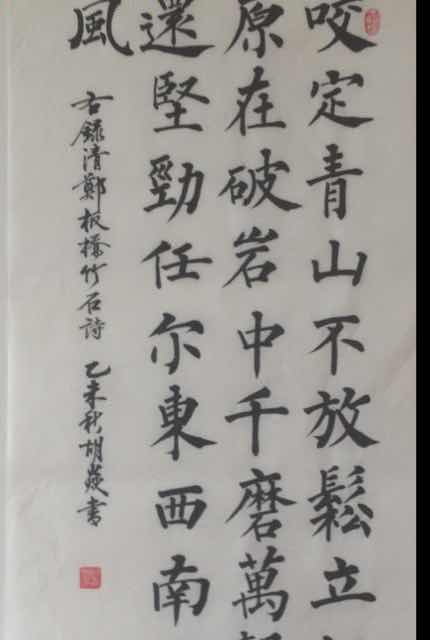 咬定青山不放鬆立
原在破岩中千磨萬
還堅勁任尔東西南
風
右錄清鄭板橋竹石詩 乙未秋胡書